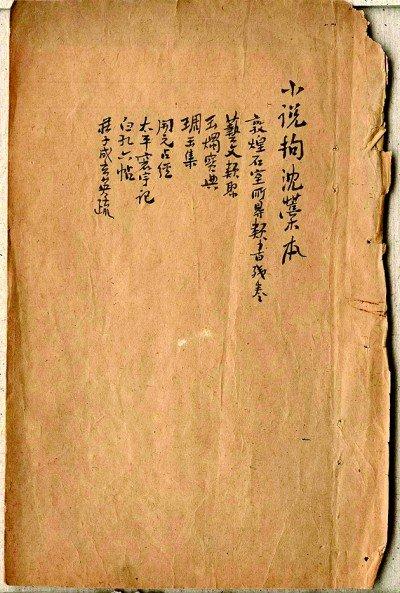 小説拘沈藁本
敦煌石室所㝵類書残卷
藝文類聚
玉燭寶典
琱玉集
開元占經
太平寰宇記
白孔六帖
莊子成玄英疏